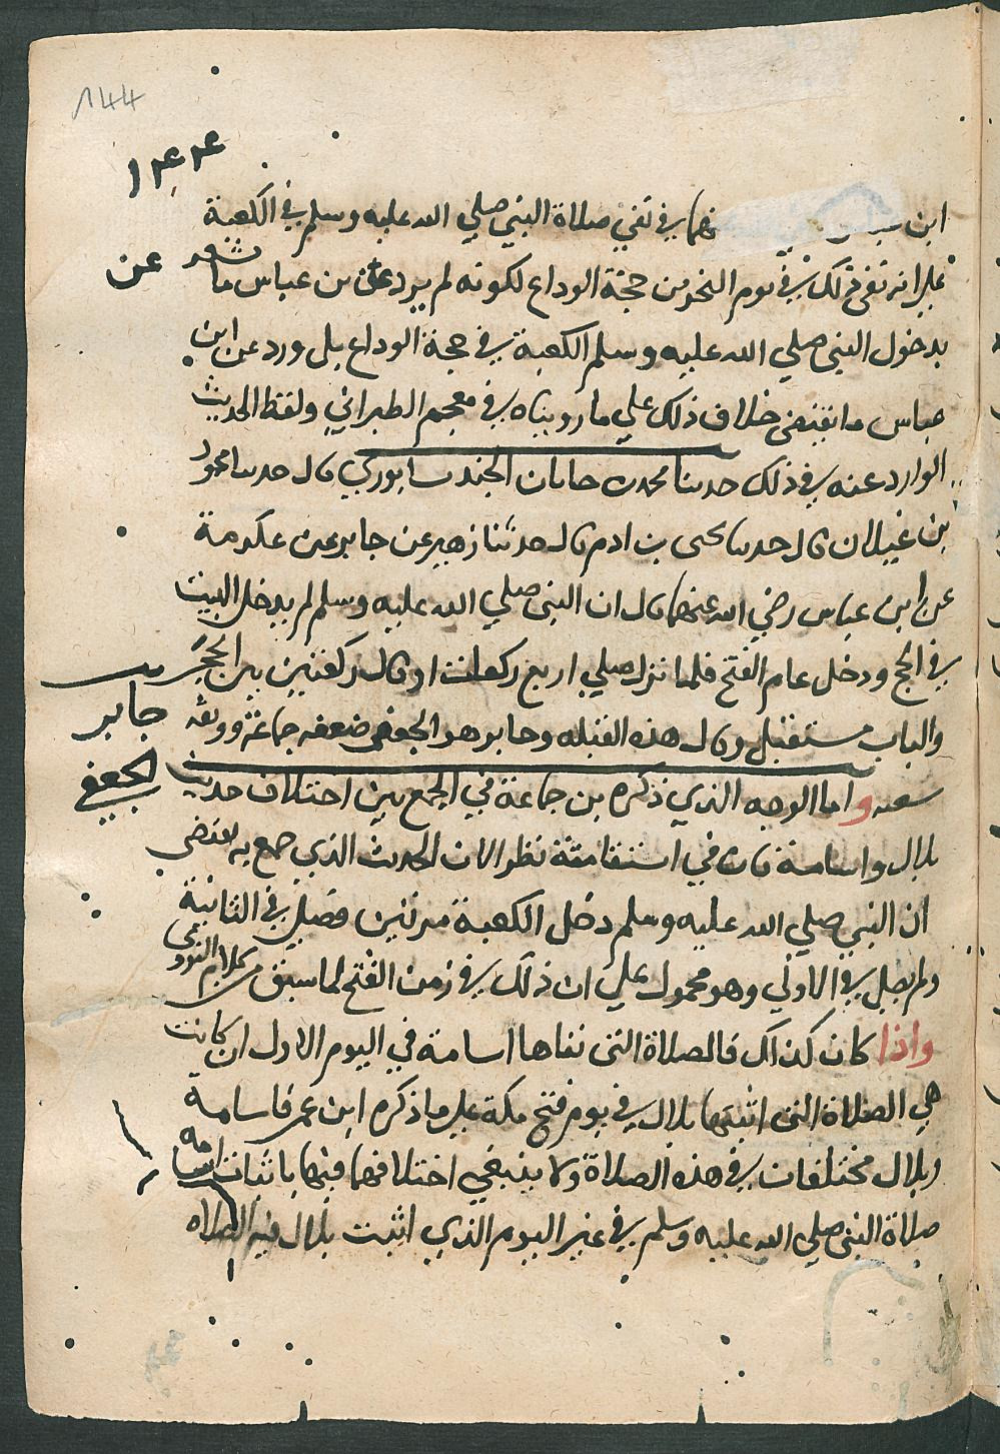 144
١٤٤
ابن عباس نهما في نفي صلاة النبي صلي الله عليه وسلم في الكعبة
علي انه نفي ذلك في يوم النحر من حجة الوداع لكونه لم يرد عن بن عباس ما يشعر
عن
بدخول النبي صلي الله عليه وسلم الكعبة في حجة الوداع بل ورد عن ابن
عباس ما يقتضي خلاف ذلك علي ما رويناه في معجم الطبراني ولفظ الحديث
الوارد عنه في ذلك حدثنا محمد بن حابان الجند سابوري قال حدثنا محمود
بن غيلان قال حدثنا يحيى بن ادم قال حدثنا زهير عن جابر عن عكرمة
عن ابن عباس رضي الله عنهما قال ان النبي صلي الله عليه وسلم لم يدخل البيت
في الحج ودخل عام الفتح فلما نزل صلي اربع ركعات او قال ركعتين بين الحجر
والباب مستقبل وقال هذه القبله وجابر هو الجعفي ضعفه جماعة ووثقه
جابر
الجعفي
شعبه واما الوجه الذي ذكره بن جماعة في الجمع بين اختلاف حديث
بلال واسامة فان في استقامته نظر الان الحديث الذي جمع به يقتضي
ان النبي صلي الله عليه وسلم دخل الكعبة مرتين فصلي في الثانية
ولم يصل في الاولي وهو محمول علي ان ذلك في زمن الفتح لما سبق من كلام النووي
واذا كان كذلك فالصلاة التي نفاها اسامة في اليوم الاول ان كانت
هي الصلاة التي اثبتها بلال في يوم فتح مكة علي ما ذكره ابن عمر فاسامة
وبلال مختلفان في هذه الصلاة ولا ينبغي اختلافهما فيها باثبات اسامه
صلاة النبي صلي الله عليه وسلم في غير اليوم الذي اثبت بلال فيه الصلاه